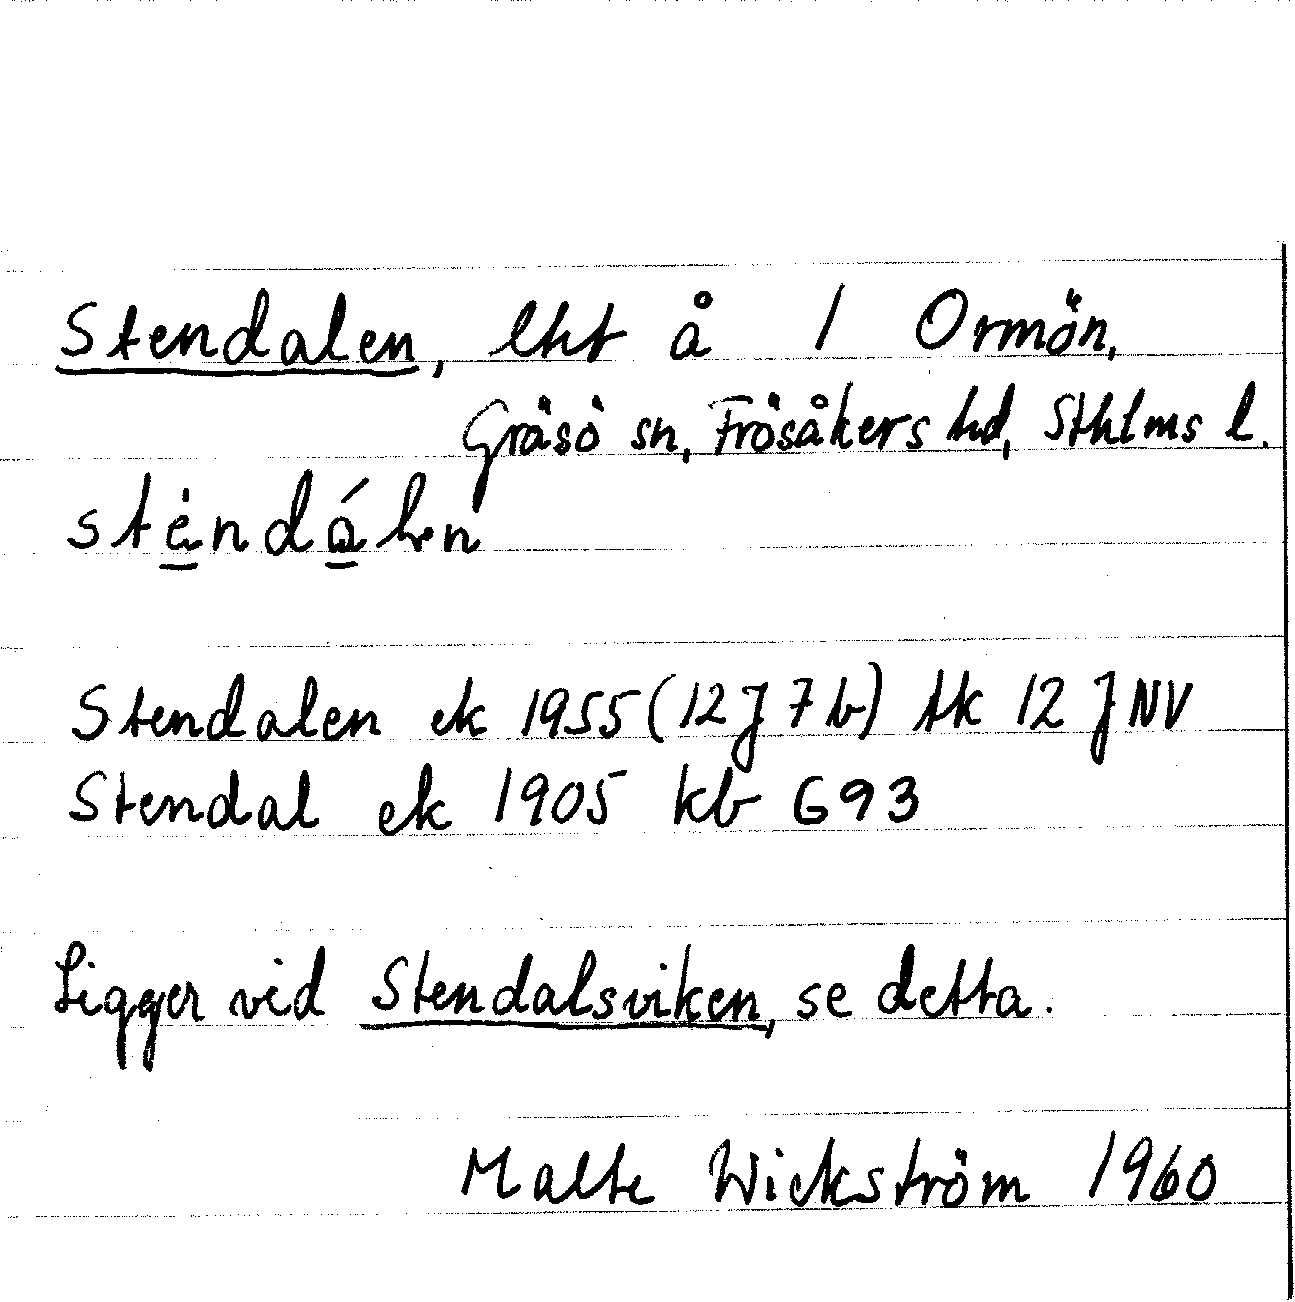 Stendalen, lht å 1 Ormön,
Gräsö sn, Frösåkers hd, Sthlms l.
sténdálen
Stendalen ek 1955 (12J 7b) tk 12 J NV
Stendal ek 1905 kb 693
Ligger vid Stendalsviken, se detta.
Malte Wickström 1960